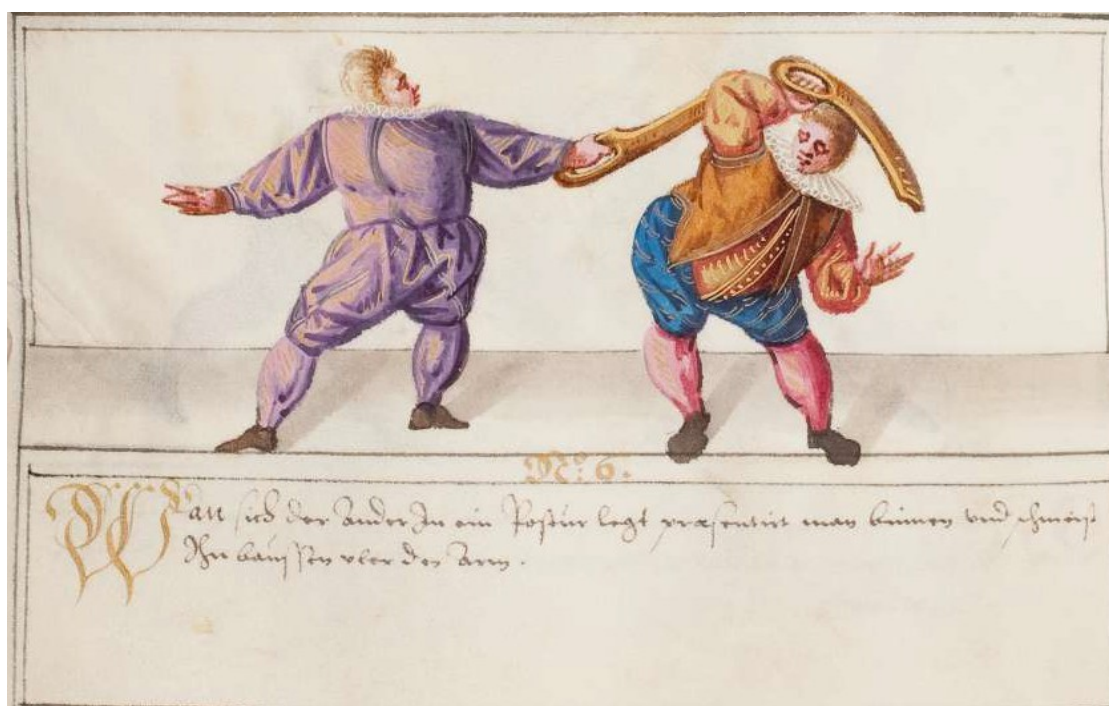 N.º 6.
Wan sich der ander In ein Postur legt præsentirt man binnen vnd schmeist
Ihn baussen vber den Arm.